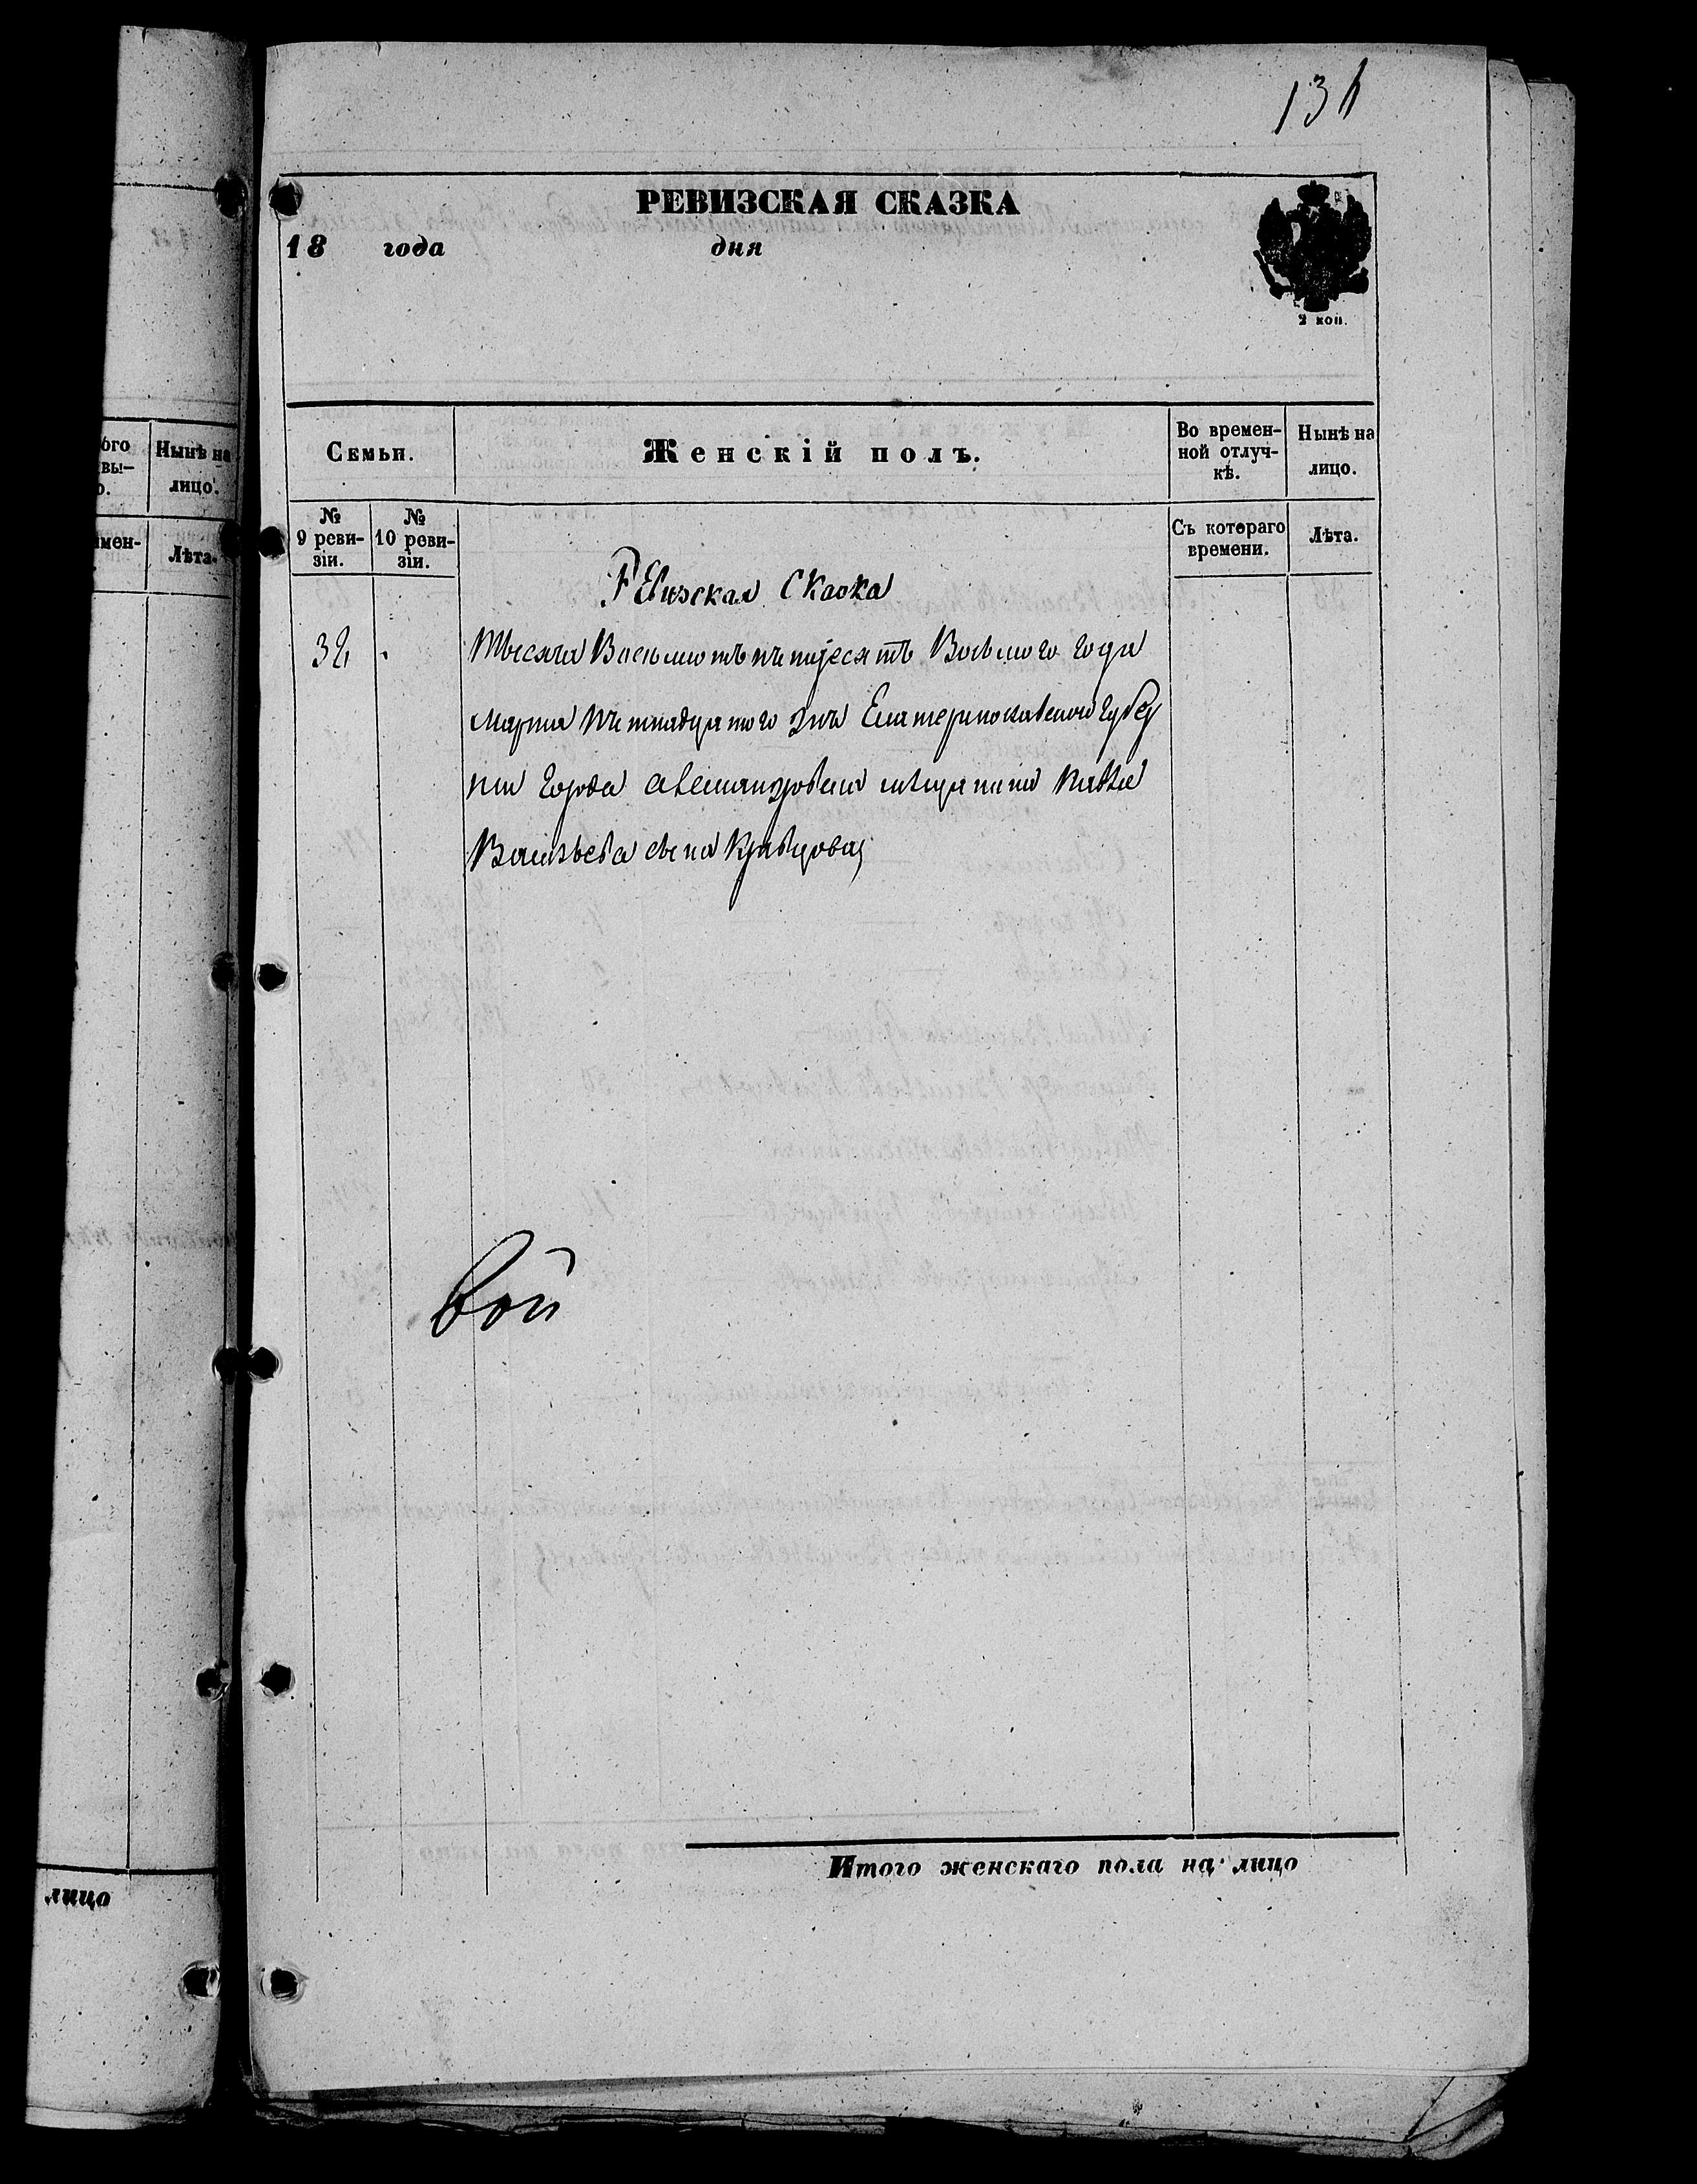 131
РЕВИЗСКАЯ СКАЗКА
18 года дня
2 коп.
Семьи.
Женскій полъ.
Во времен-
ной отлуч-
кѣ.
Нынѣ на
лицо.
№
9 реви-
зіи.
№
10 реви-
зіи.
Съ котораго
времени.
Лѣта.
Ревизская Скаска
Тысяча Восьмсотъ пѣтдесятъ Восьмого года
марта пѣтнадцатого дня Екатеринославской Губер
нии Города Александровска мѣщанина Павла
Васильева сына Кравцова
Итого женскаго пола на лицо
ого
вы-
о.
Нынѣ на
лицо.
мен-
Лѣта.
лицо